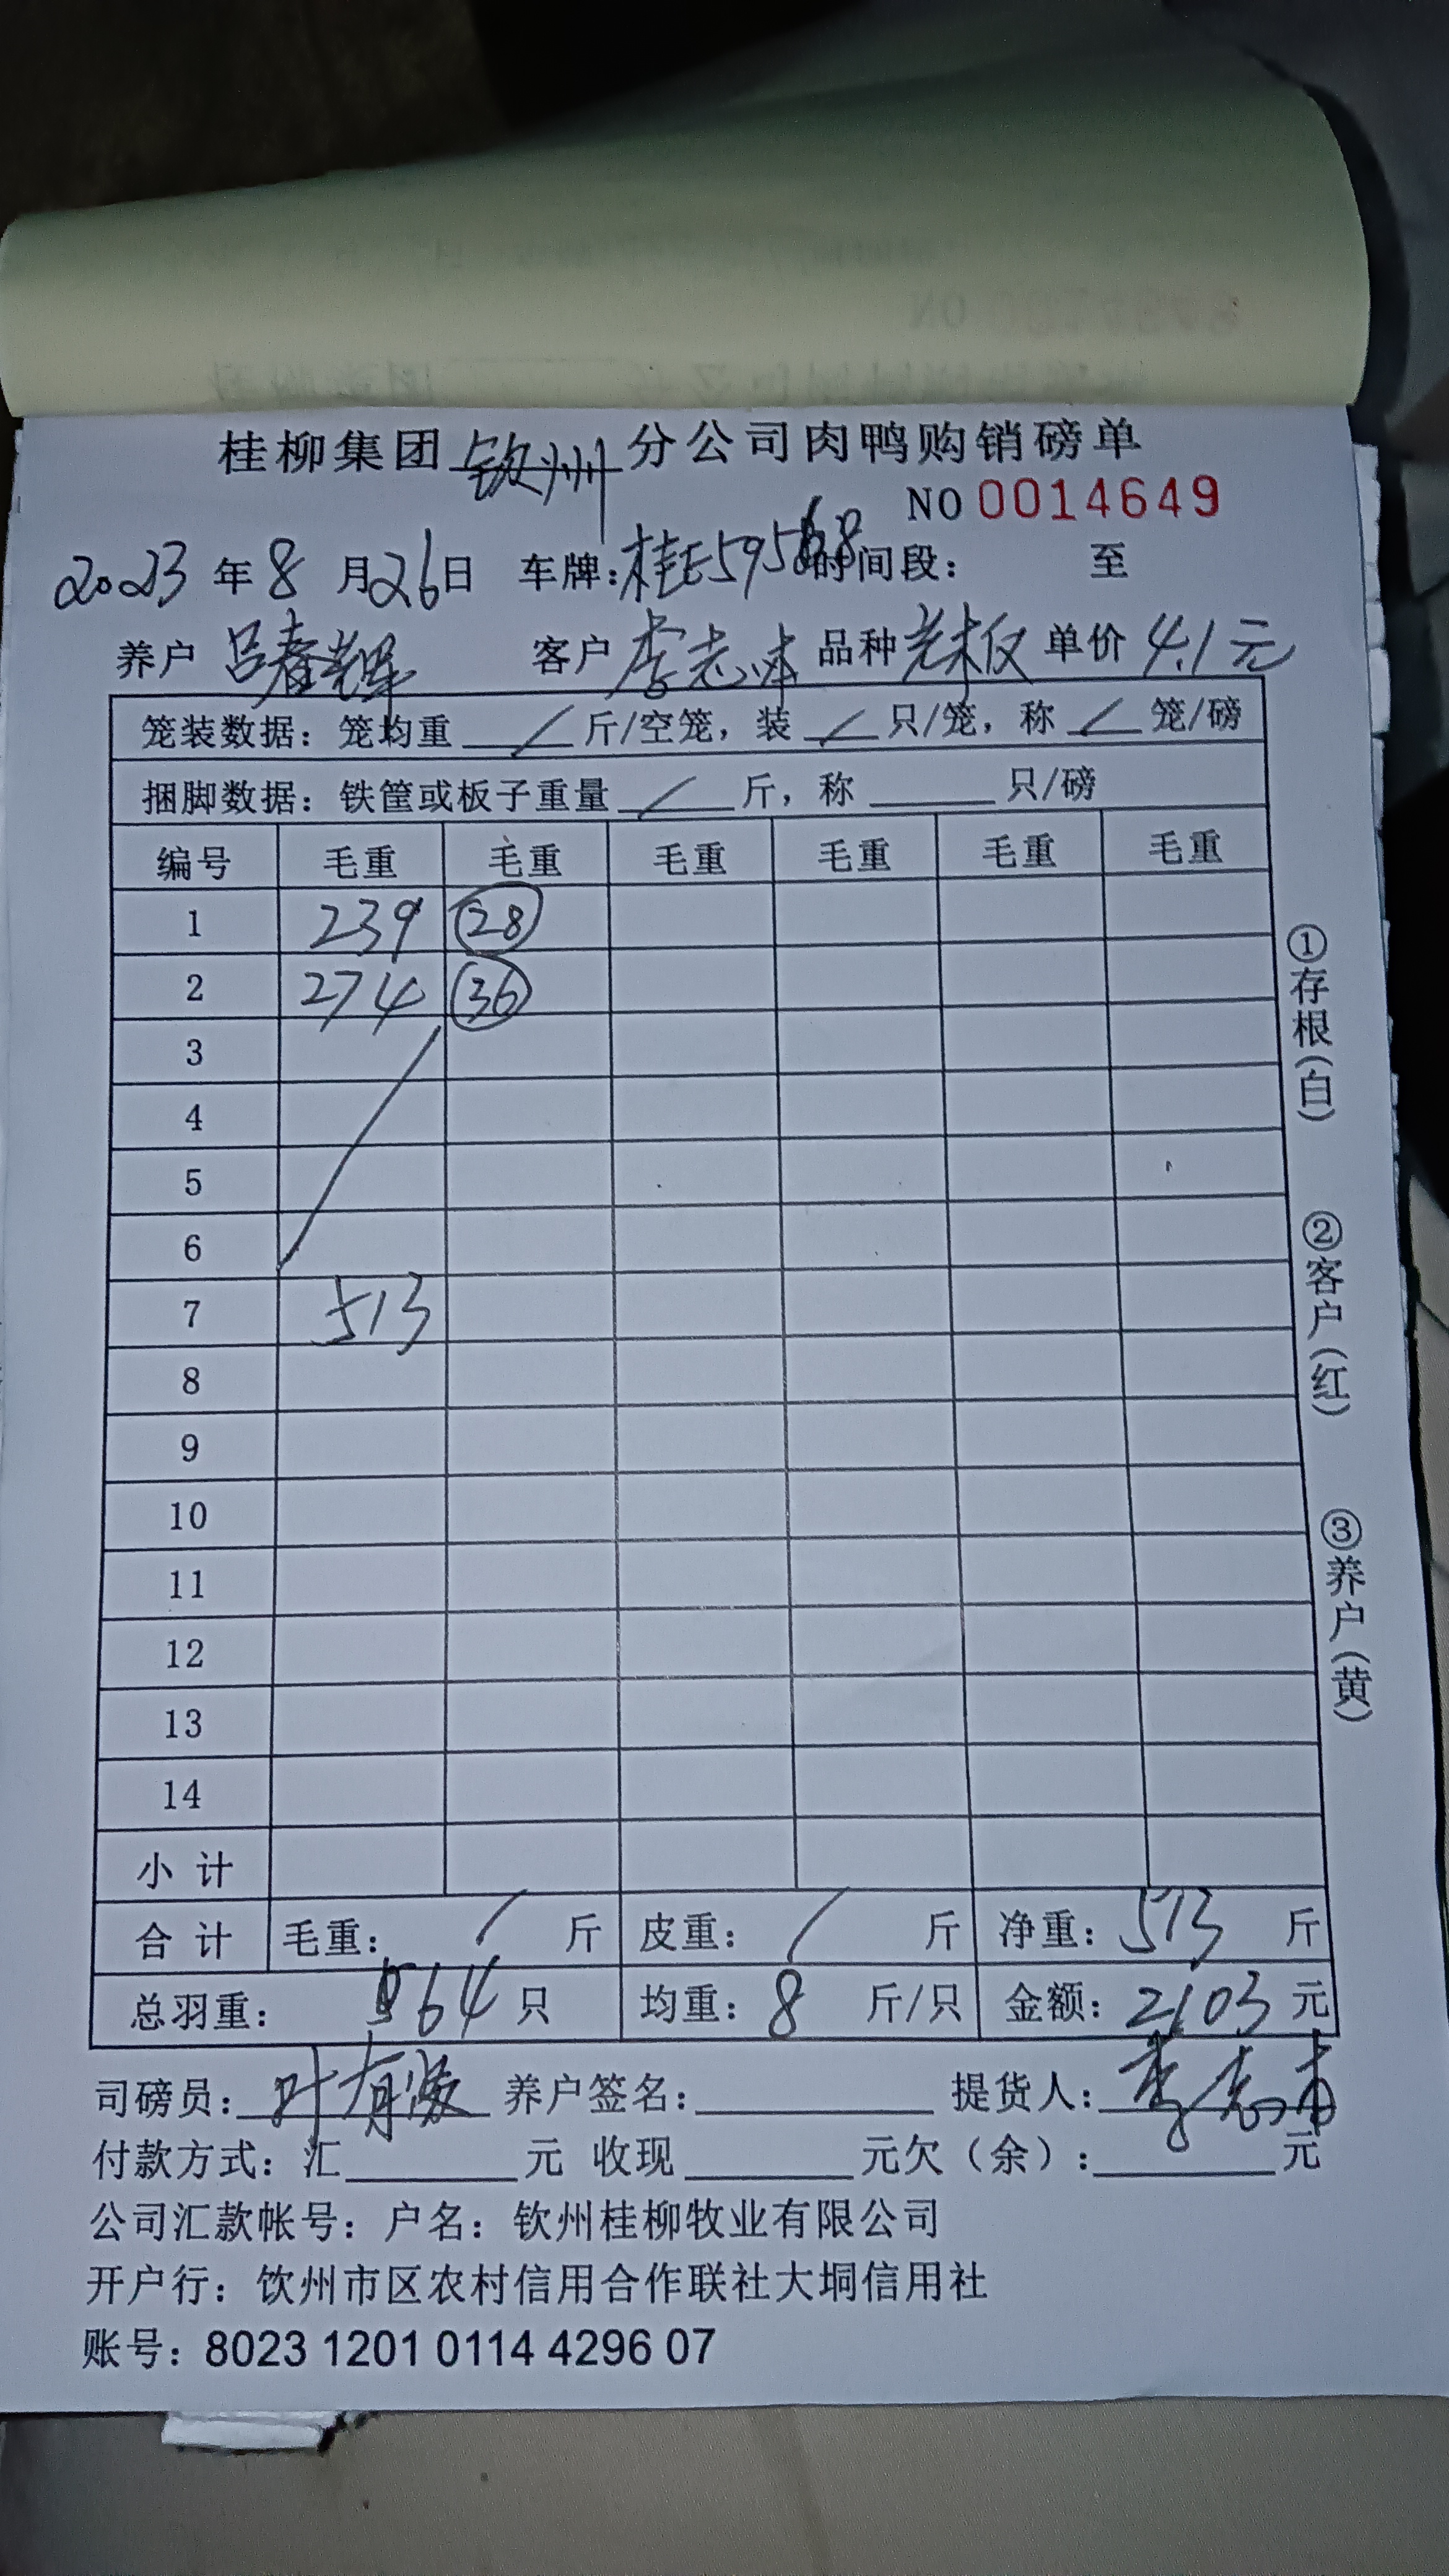 桂柳集团 钦州 分公司肉鸭购销磅单
NO 0014649
2023 年 8 月 26 日 车牌：桂E595 时间段： 至
养户 吕春辉 客户 李志 品种 单价 4.1元
笼装数据：笼均重 / 斤/空笼，装 / 只/笼，称 / 笼/磅
捆脚数据：铁筐或板子重量 / 斤，称 只/磅
编号 毛重 毛重 毛重 毛重 毛重 毛重
1 239 28
2 274 36
3
4
5
6
7 513
8
9
10
11
12
13
14
小计
合计 毛重： / 斤 皮重： / 斤 净重：513 斤
总羽重： 64 只 均重：8 斤/只 金额：2103 元
司磅员：叶有 养户签名： 提货人：李志
付款方式：汇 元 收现 元欠（余）： 元
公司汇款帐号：户名：钦州桂柳牧业有限公司
开户行：饮州市区农村信用合作联社大垌信用社
账号：8023 1201 0114 4296 07
①存根（白）
②客户（红）
③养户（黄）